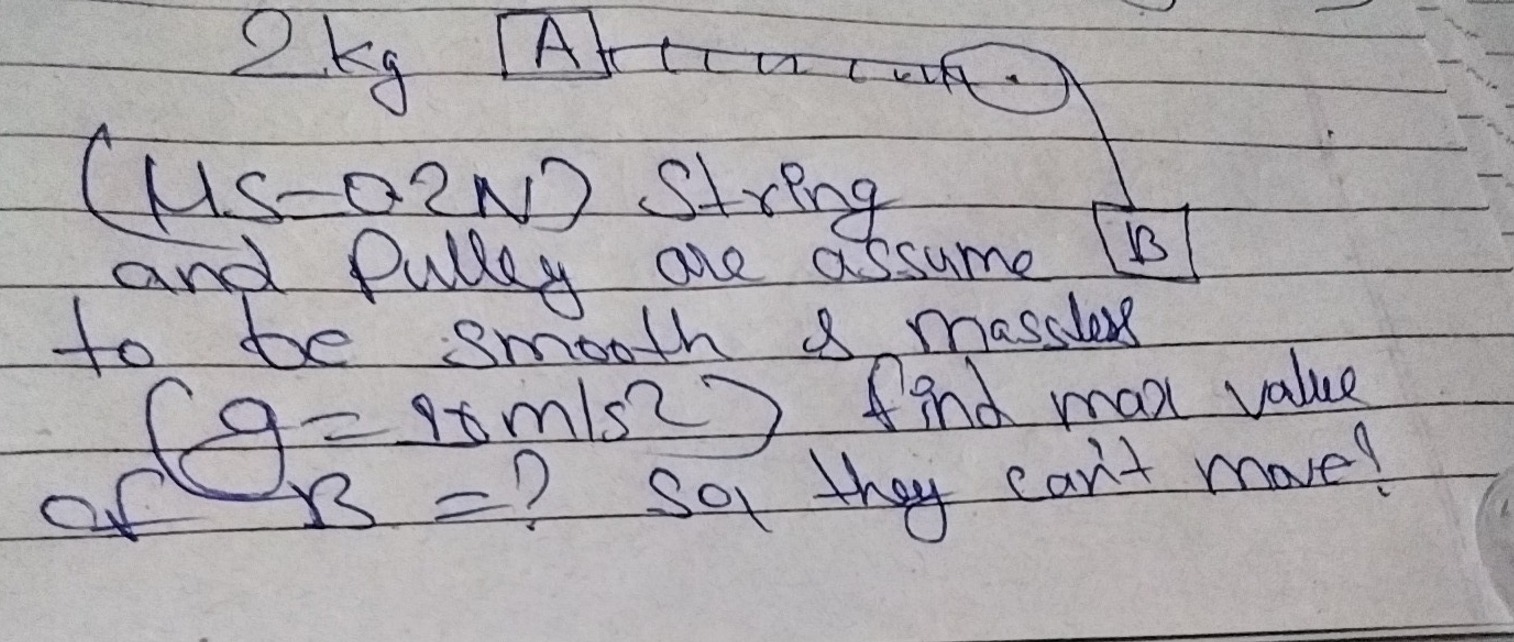 2kg A
(μs=0.2N) String
and Pulley are assume B
to be smooth & massless
(g = 10 m/s2) find max value
of B =? So, they can't move!